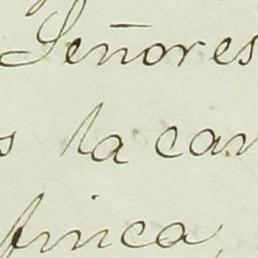 Señores
s la can
finca,